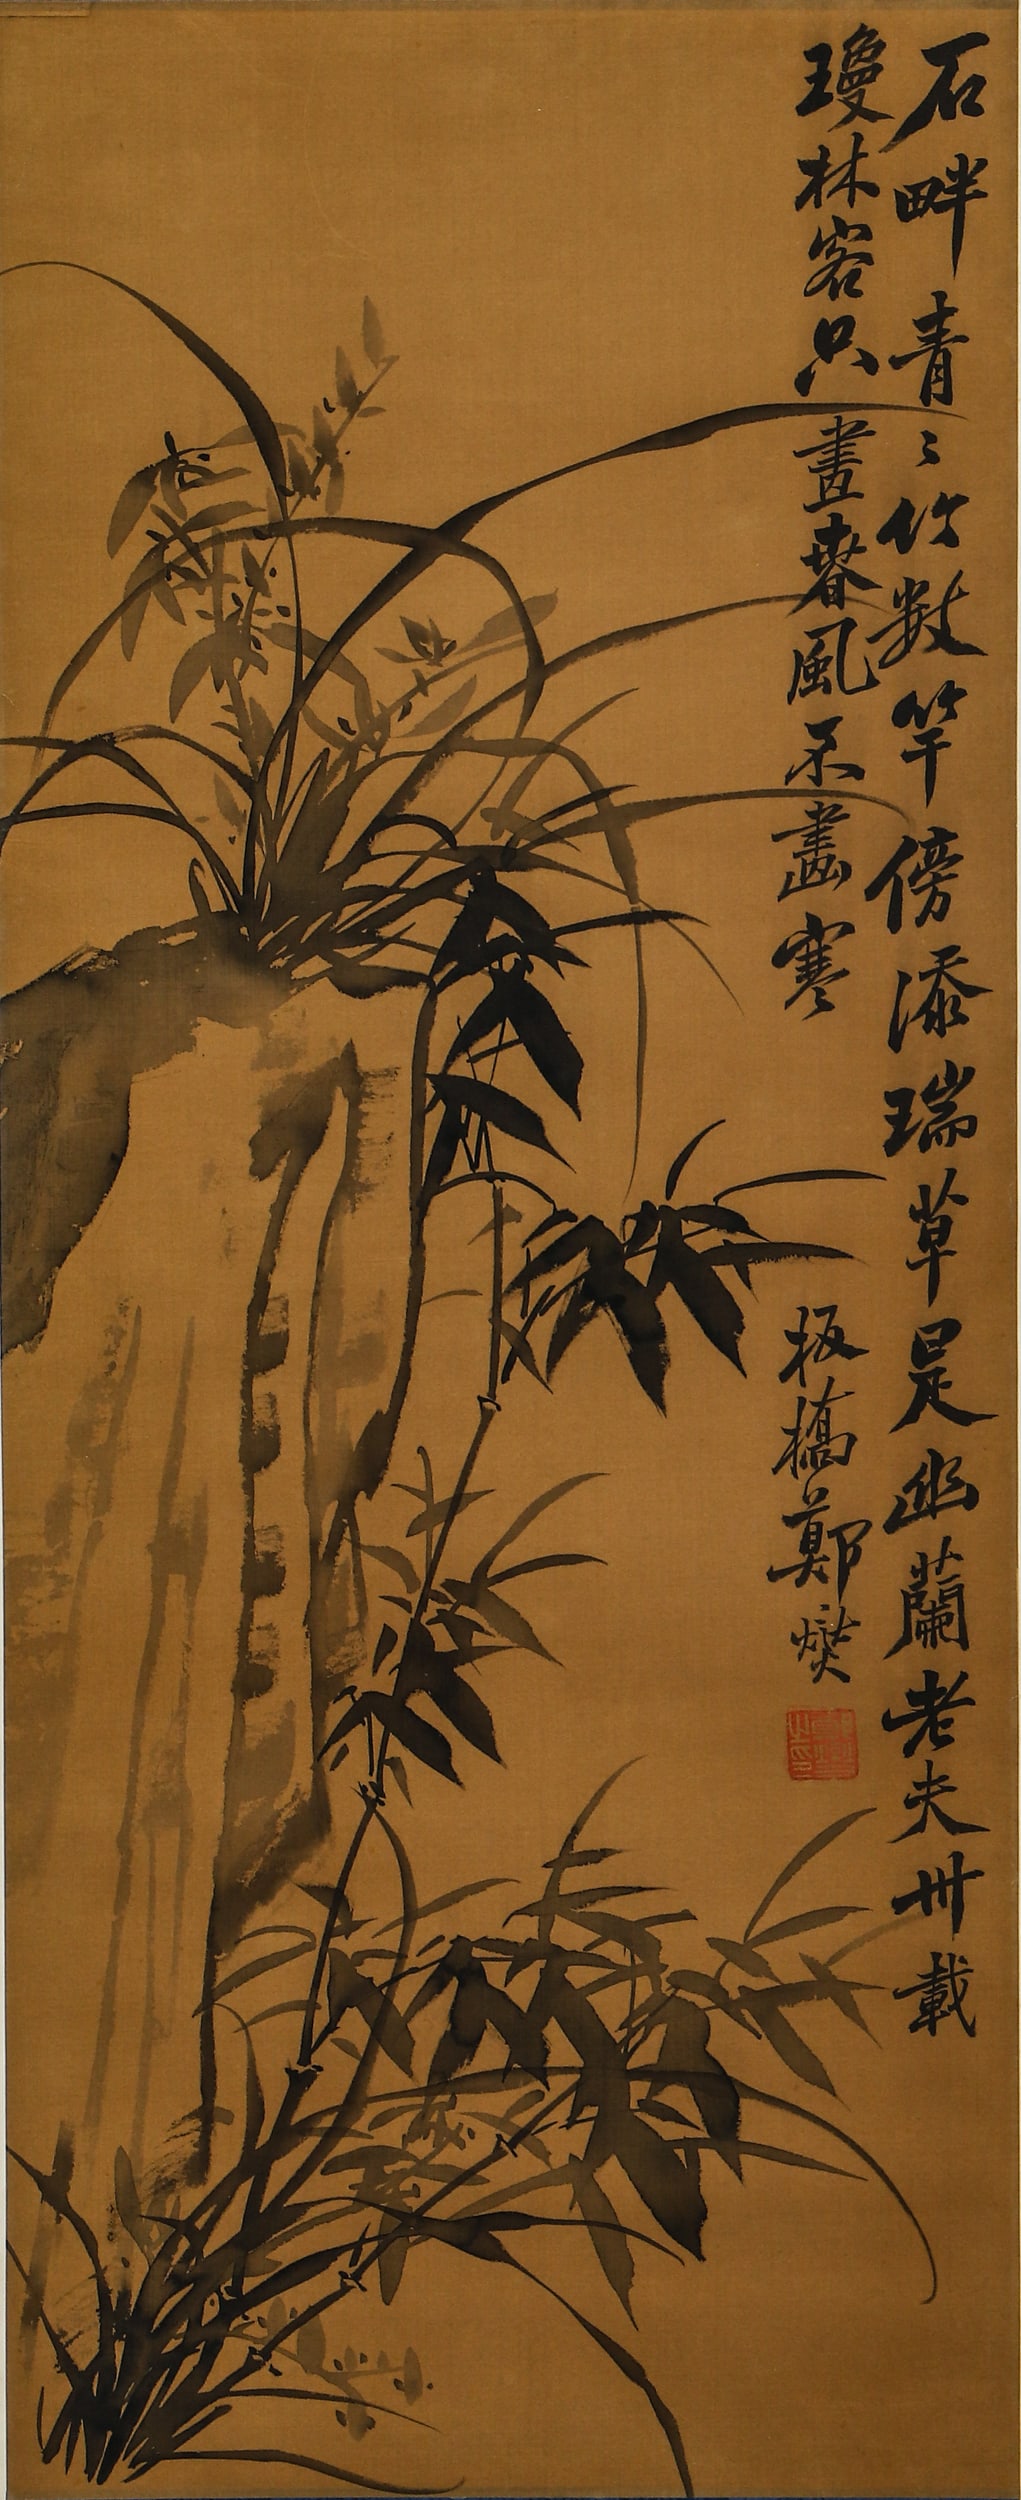 石畔青〻竹數竿傍添瑞草是幽蘭老夫卅載
瓊林客只畫春風不畫寒
板橋鄭燮